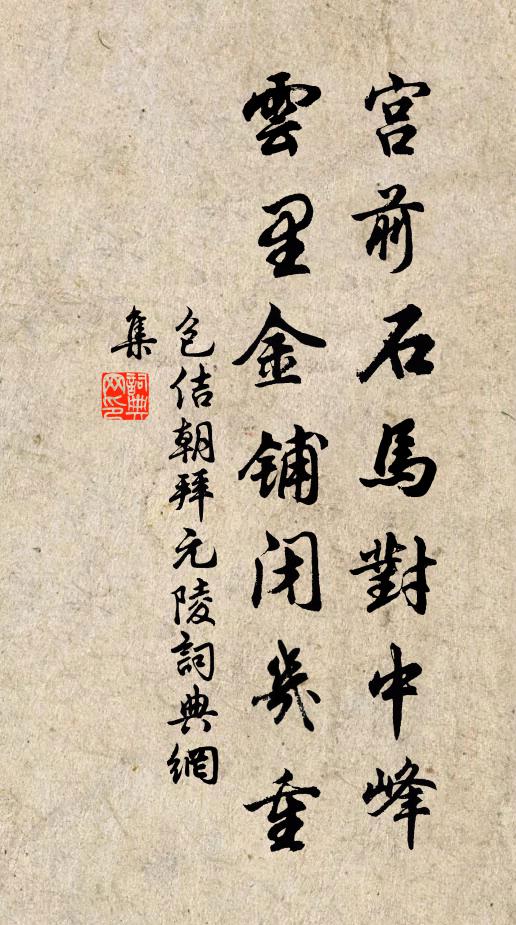 宫前石馬對中峰
雲里金铺闭幾重
包佶朝拜元陵詞典網
集
詞典
网印